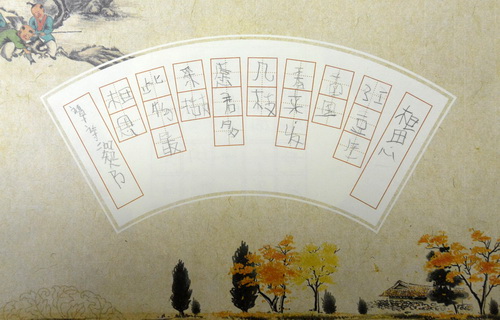 相思
红豆生
南国
春来发
几枝
愿君多
采撷
此物最
相思